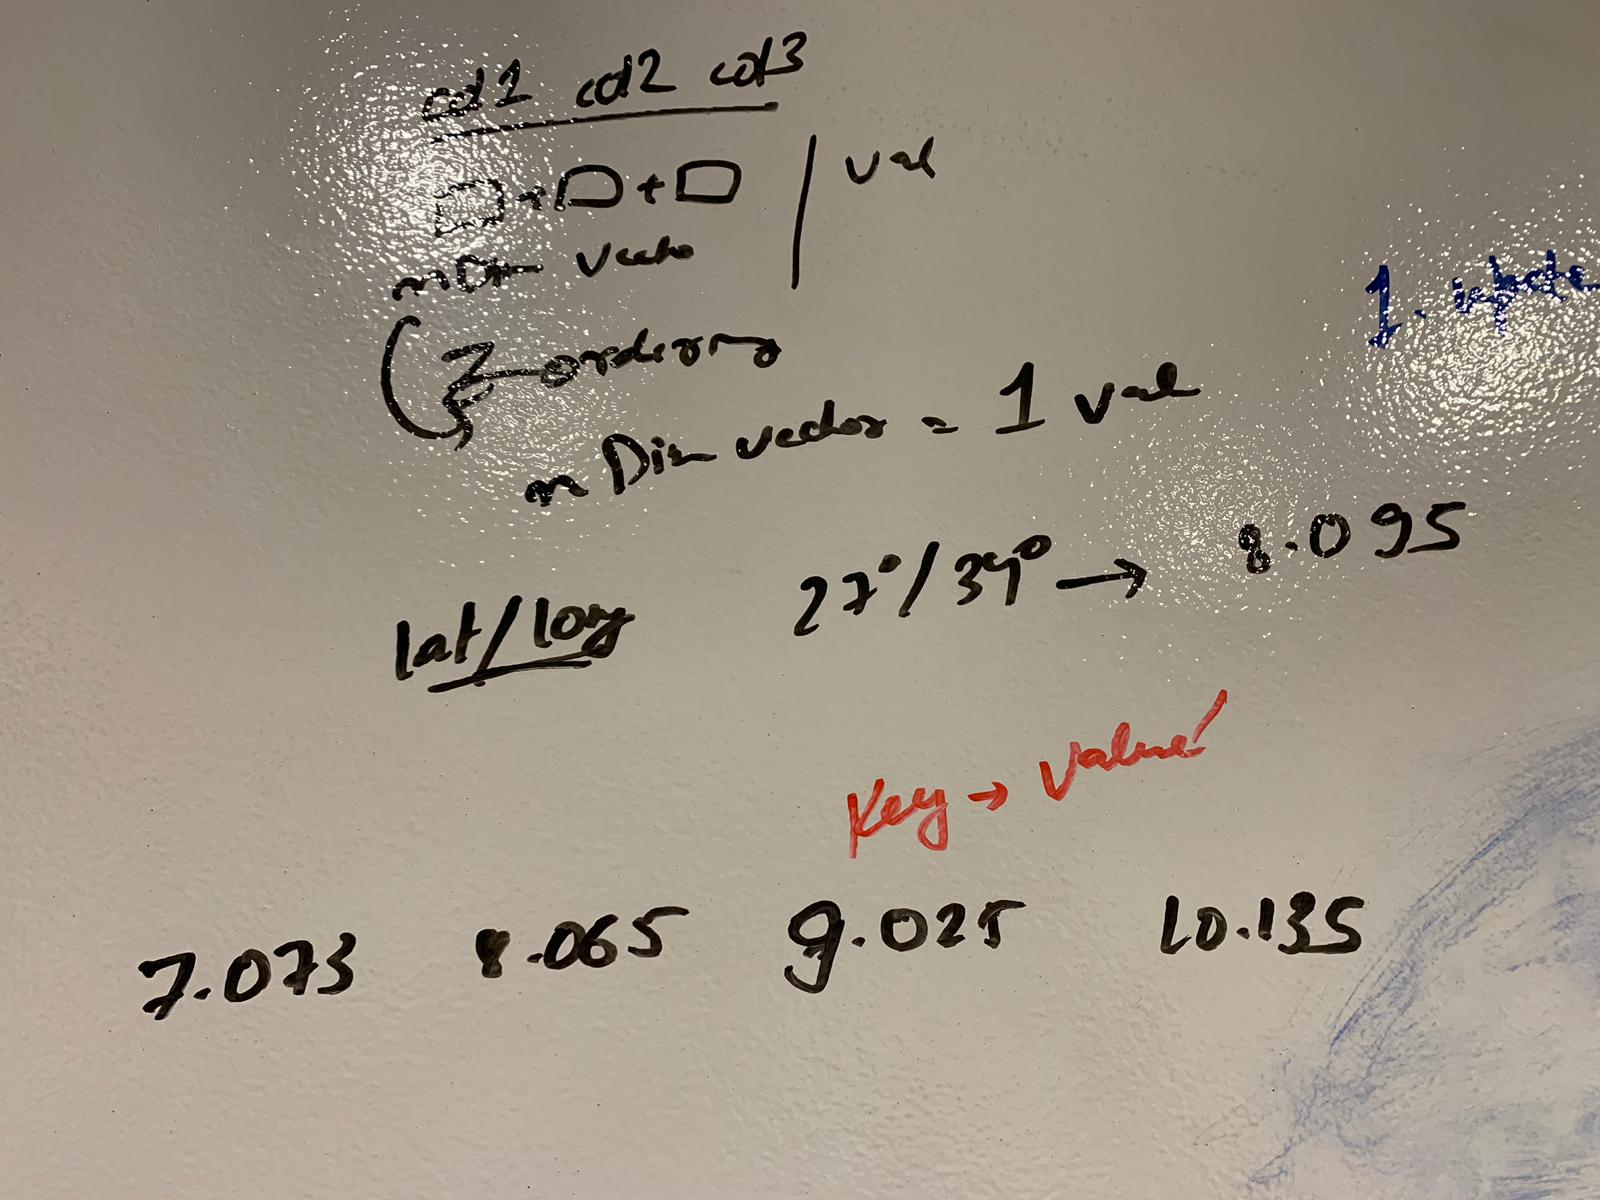 col1 col2 col3
□+□+□ | val
nDim Vecto
Z-ordering
n Dim vector = 1 val
1. update
lat/long 27°/39° → 8.095
Key → Value
7.073 8.065 9.025 10.135